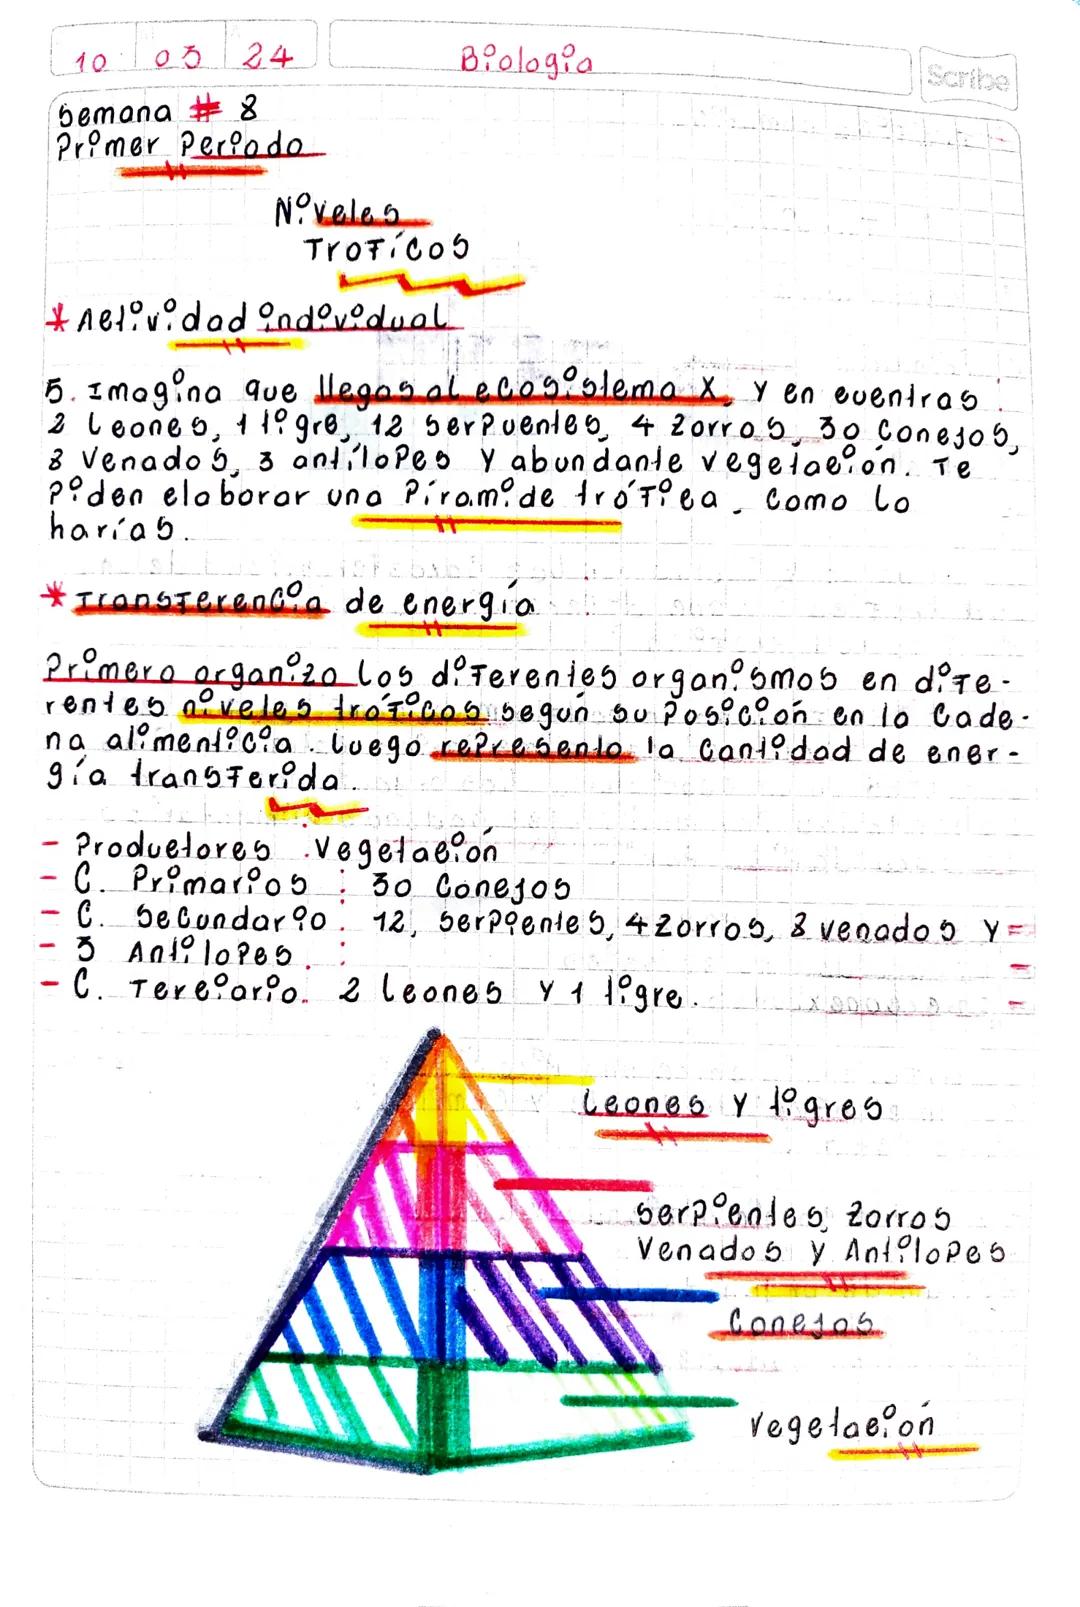 10 03 24 Biologia
Scribe
Semana # 8
Primer Periodo
Niveles
Troficos
* Actividad individual
5. Imagina que llegas al ecosistema X, y en cuentras :
2 leones, 1 tigre, 12 serpuentes, 4 zorros, 30 conejos,
8 venados, 3 antílopes y abundante vegetación. Te
piden elaborar una pirámide trófica, como lo
harías.
* Transferencia de energía
Primero organizo los diferentes organismos en dife-
rentes niveles tróficos según su posición en la cade-
na alimenticia. luego represento la cantidad de ener-
gía transferida.
- Productores : Vegetación
- C. Primarios : 30 Conejos
- C. Secundario : 12, serpientes, 4 zorros, 8 venados y -
- 3 Antilopes. :
- C. Terciario. 2 leones y 1 tigre.
leones y tigres
serpientes, zorros
Venados y Antilopes
Conejos
Vegetación